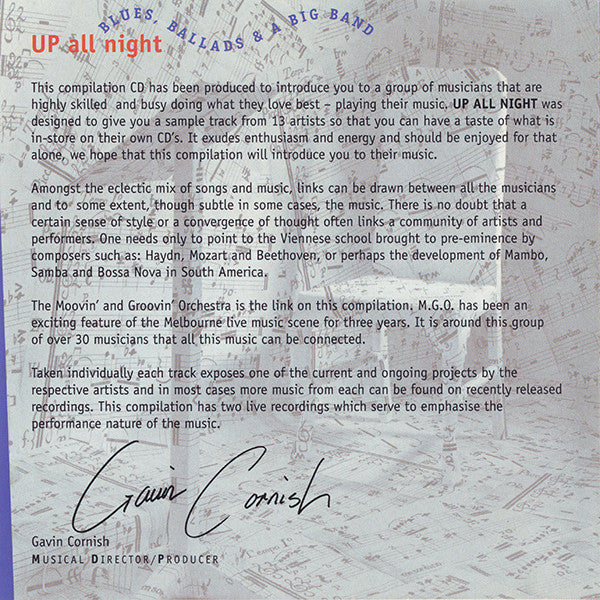 BLUES, BALLADS & A BIG BAND
UP all night
This compilation CD has been produced to introduce you to a group of musicians that are
highly skilled and busy doing what they love best – playing their music. UP ALL NIGHT was
designed to give you a sample track from 13 artists so that you can have a taste of what is
in-store on their own CD's. It exudes enthusiasm and energy and should be enjoyed for that
alone, we hope that this compilation will introduce you to their music.
Amongst the eclectic mix of songs and music, links can be drawn between all the musicians
and to some extent, though subtle in some cases, the music. There is no doubt that a
certain sense of style or a convergence of thought often links a community of artists and
performers. One needs only to point to the Viennese school brought to pre-eminence by
composers such as: Haydn, Mozart and Beethoven, or perhaps the development of Mambo,
Samba and Bossa Nova in South America.
The Moovin' and Groovin' Orchestra is the link on this compilation, M.G.O. has been an
exciting feature of the Melbourne live music scene for three years. It is around this group
of over 30 musicians that all this music can be connected.
Taken individually each track exposes one of the current and ongoing projects by the
respective artists and in most cases more music from each can be found on recently released
recordings. This compilation has two live recordings which serve to emphasise the
performance nature of the music.
Gavin Cornish
Gavin Cornish
MUSICAL DIRECTOR/PRODUCER